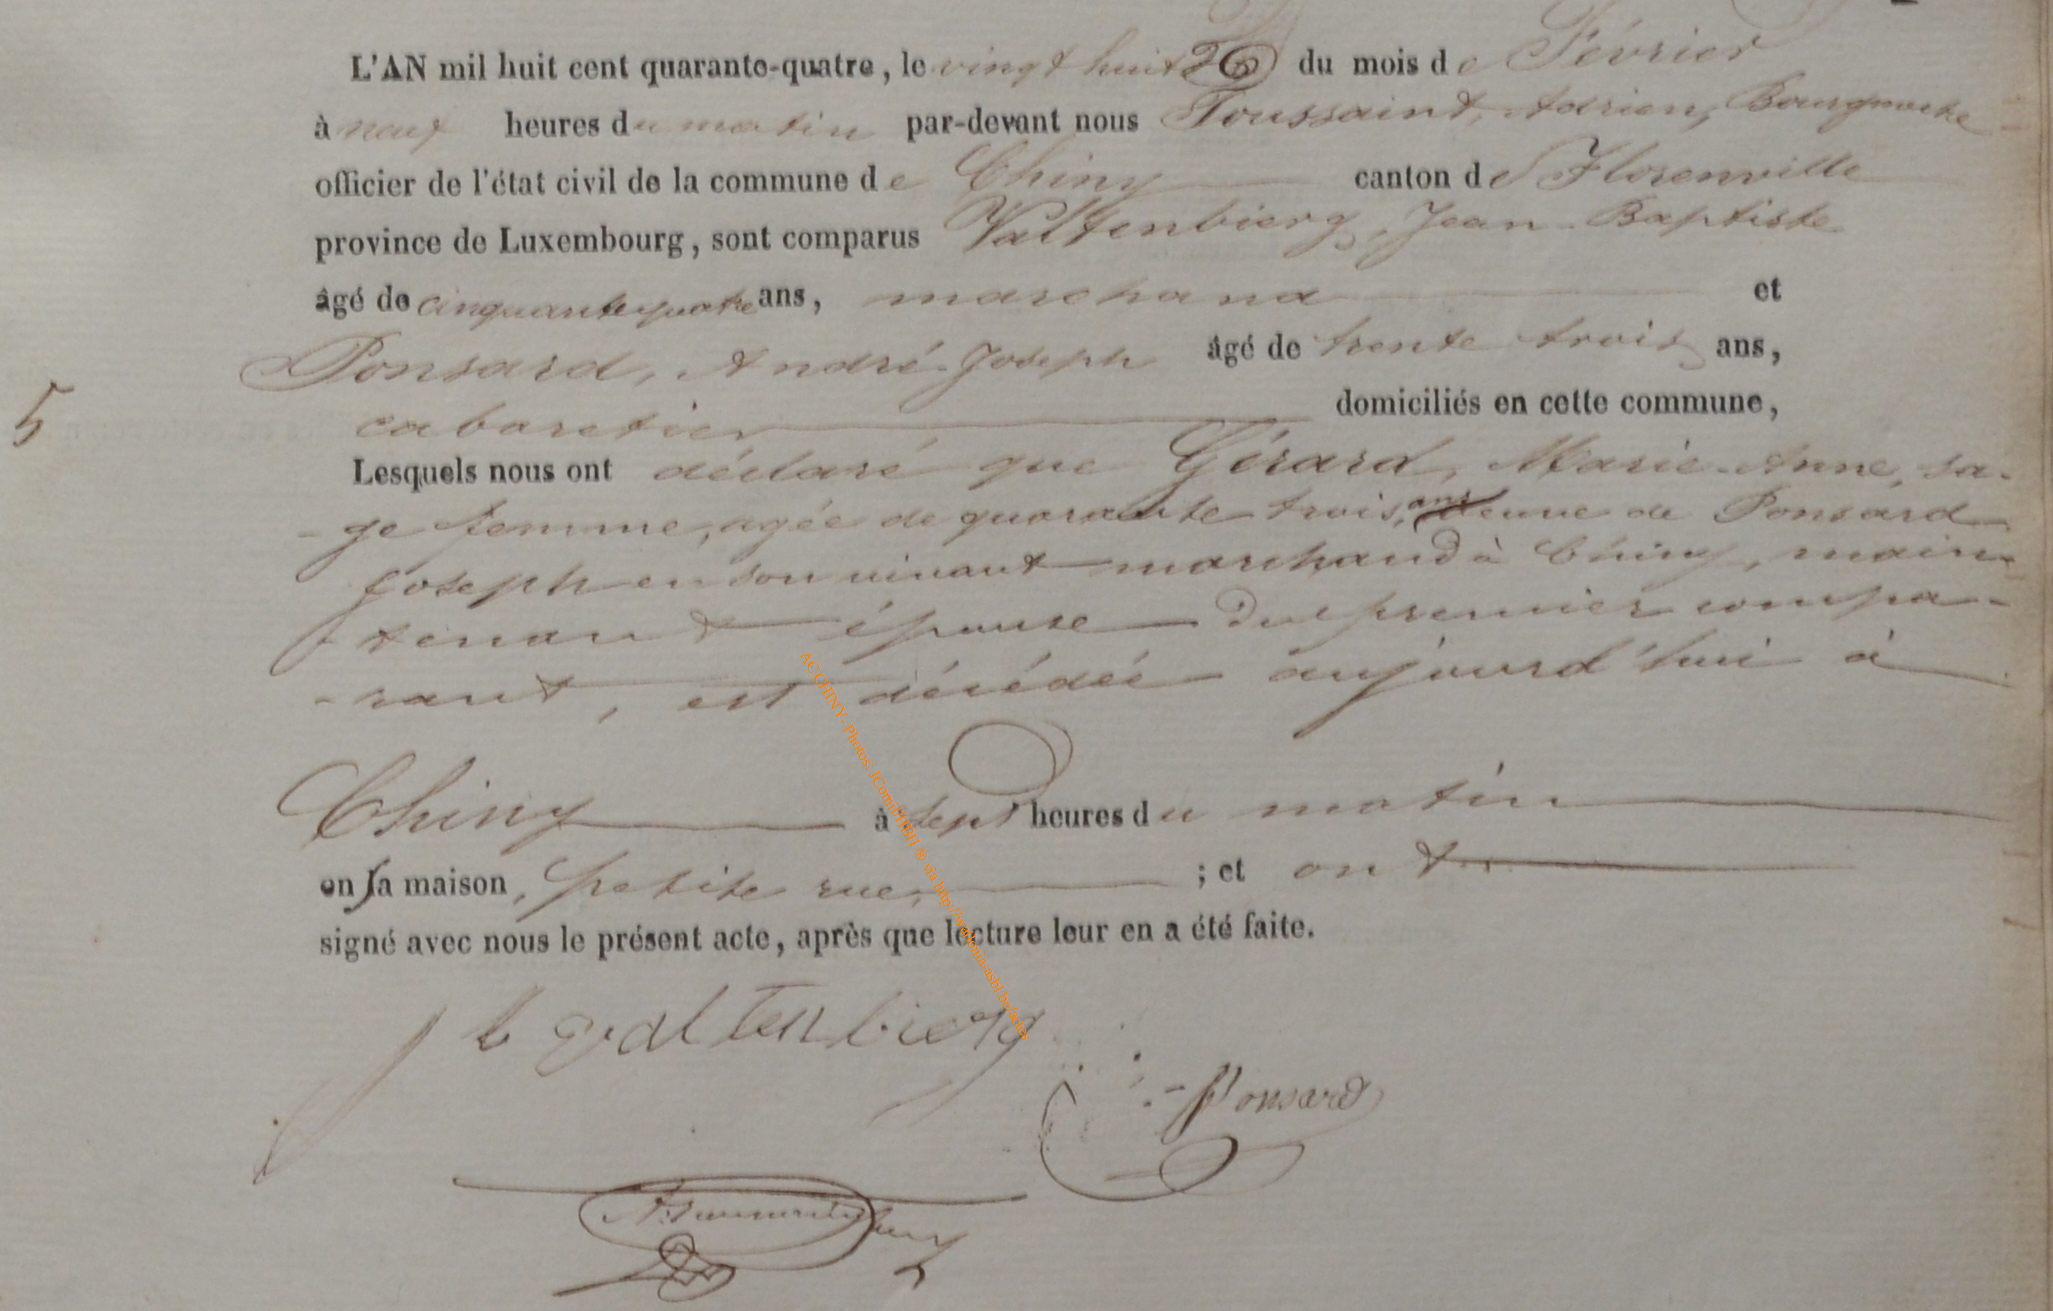 L'AN mil huit cent quarante-quatre, le vingt huit du mois de Février
à neuf heures du matin par-devant nous Toussaint, Adrien, Bourgmestre
officier de l'état civil de la commune de Chiny canton de Florenville
province de Luxembourg, sont comparus Valtenbierg, Jean-Baptiste
âgé de cinquante quatre ans, marchand et
Ponsard, André-Joseph âgé de trente trois ans,
cabaretier domiciliés en cette commune,
5
Lesquels nous ont déclaré que Gérard, Marie-Anne, sa-
-ge femme, agée de quarante trois, ans veuve de Ponsard
Joseph en son vivant marchand à Chiny, main-
tenant épouse du premier compa-
-rant, est décédée aujourd'hui à
Chiny à sept heures du matin
en sa maison, petite rue, ; et ont
signé avec nous le présent acte, après que lecture leur en a été faite.
J b valtenbierg
Ponsard
AC CHINY - Photos